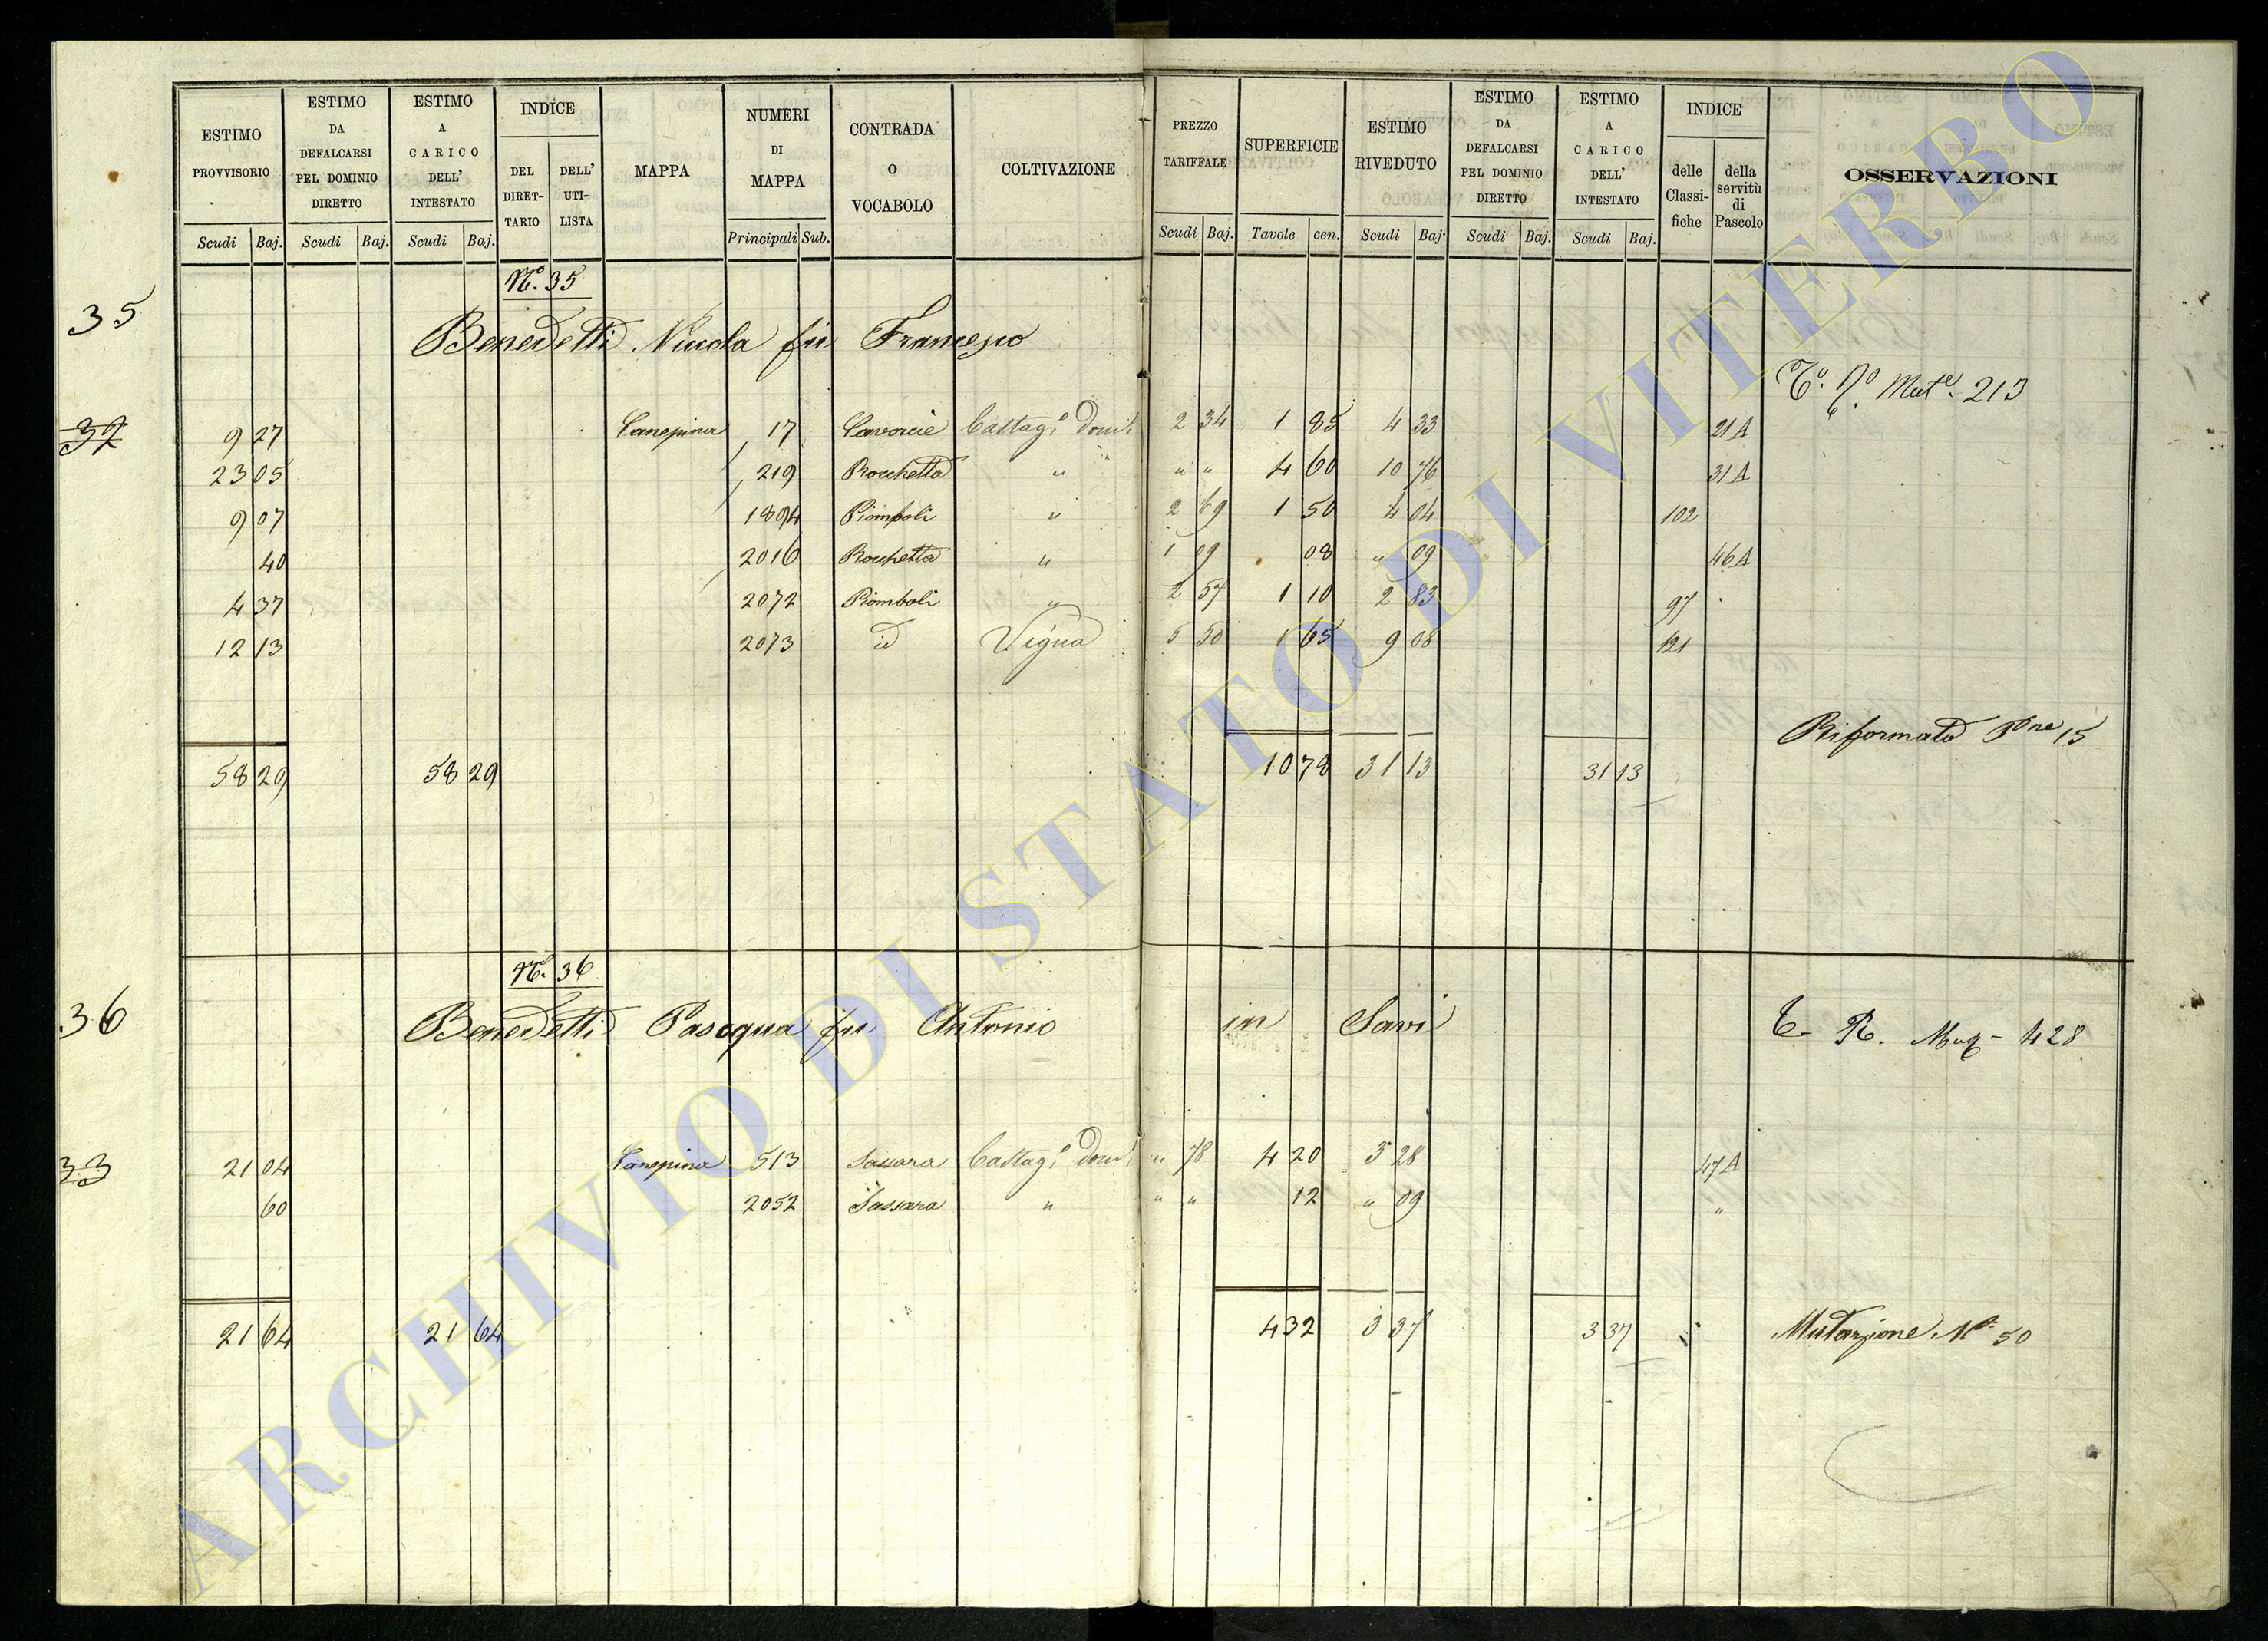 ESTIMO PROVVISORIO | ESTIMO DA DEFALCARSI PEL DOMINIO DIRETTO | ESTIMO A CARICO DELL' INTESTATO | INDICE DEL DIRET-TARIO | DELL' UTI-LISTA | MAPPA | NUMERI DI MAPPA | CONTRADA O VOCABOLO | COLTIVAZIONE | PREZZO TARIFFALE | SUPERFICIE | ESTIMO RIVEDUTO | ESTIMO DA DEFALCARSI PEL DOMINIO DIRETTO | ESTIMO A CARICO DELL' INTESTATO | INDICE delle Classi-fiche | della servitù di Pascolo | OSSERVAZIONI
Scudi Baj. Scudi Baj. Scudi Baj. Principali Sub. Scudi Baj. Tavole cen. Scudi Baj. Scudi Baj. Scudi Baj.
Nº. 35
35
Benedetti Nicola fu Francesco
Mute. 213
32
9 27 Canepina 17 Castag.º Dom. 2 34 1 85 4 33 21A
23 05 219 Rocchetta " " " 4 60 10 76 31A
9 07 1894 Piomboli " 2 69 1 50 4 04 102
40 2016 Rocchetta " 1 09 08 " 09 46A
4 37 2072 Piomboli " 2 57 1 10 2 83 97
12 13 2073 id Vigna 5 50 1 65 9 08 121
Riformato Pne 15
58 29 58 29 10 78 31 13 31 13
Nº. 36
36
Benedetti Pasqua fu Antonio in Savi
T- R. Mag- 428
33
21 04 Canepina 513 Sassara Castag.º Dom. " 78 4 20 3 28 47A
60 2052 Sassara " " " 12 " 09 "
21 64 21 64 4 32 3 37 3 37 Mutazione Nº 50
ARCHIVIO DI STATO DI VITERBO